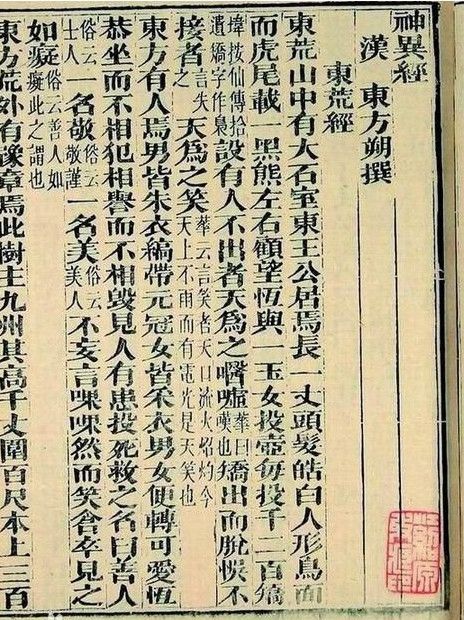 神異經
漢 東方朔撰
東荒經
東荒山中有大石室東王公居焉長一丈頭髮皓白人形鳥面
而虎尾載一黑熊左右顧望恆與一玉女投壺每投千二百矯
按仙傳拾遺矯字作梟設有人不出者天為之噓嘆也矯出而脫悞不
接者言失之天為之笑華云言笑者天口流火炤灼今天上不雨而有電光是天笑也
東方有人焉男皆朱衣縞帶元冠女皆采衣男女便轉可愛恆
恭坐而不相犯相譽而不相毀見人有患投死救之名曰善人
俗云士人一名敬俗云敬謹一名美俗云美人不妄言然而笑倉卒見之
如癡俗云善人如癡此之謂也
東方荒外有豫章焉此樹主九州其高千丈圍百尺本上三百